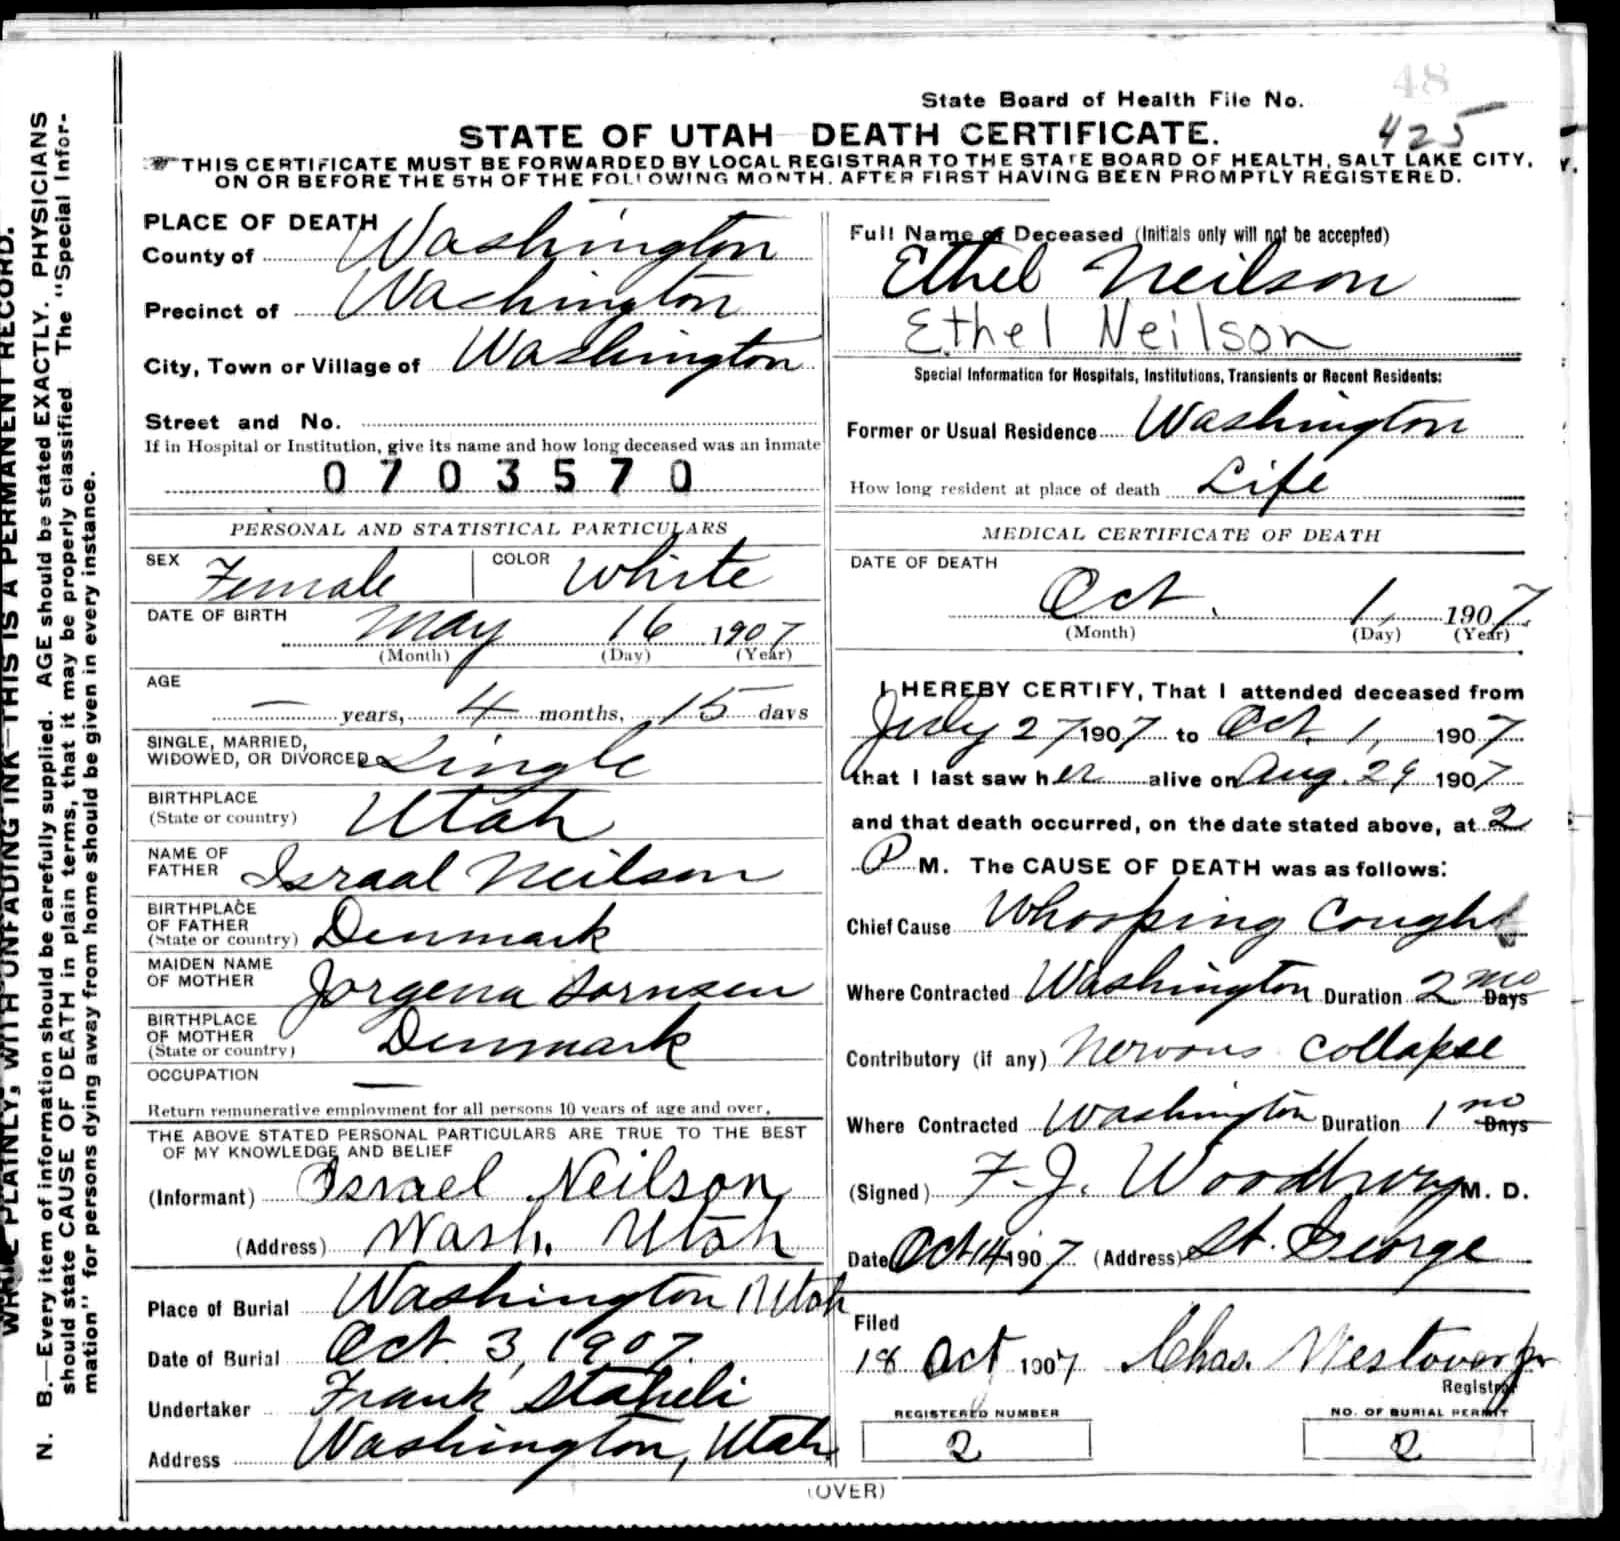 48
State Board of Health File No.
425
STATE OF UTAH DEATH CERTIFICATE.
THIS CERTIFICATE MUST BE FORWARDED BY LOCAL REGISTRAR TO THE STATE BOARD OF HEALTH, SALT LAKE CITY,
ON OR BEFORE THE 5TH OF THE FOLLOWING MONTH. AFTER FIRST HAVING BEEN PROMPTLY REGISTERED.
WRITE PLAINLY, WITH UNFADING INK—THIS IS A PERMANENT RECORD.
N. B.—Every item of information should be carefully supplied. AGE should be stated EXACTLY. PHYSICIANS
should state CAUSE OF DEATH in plain terms, that it may be properly classified. The "Special Infor-
mation" for persons dying away from home should be given in every instance.
PLACE OF DEATH
County of Washington
Precinct of Washington
City, Town or Village of Washington
Street and No.
If in Hospital or Institution, give its name and how long deceased was an inmate
0703570
PERSONAL AND STATISTICAL PARTICULARS
SEX Female COLOR White
DATE OF BIRTH
May 16 1907
(Month) (Day) (Year)
AGE
— years, 4 months, 15 days
SINGLE, MARRIED,
WIDOWED, OR DIVORCED Single
BIRTHPLACE
(State or country) Utah
NAME OF
FATHER Israal Neilson
BIRTHPLACE
OF FATHER
(State or country) Denmark
MAIDEN NAME
OF MOTHER Jorgena Sornsen
BIRTHPLACE
OF MOTHER
(State or country) Denmark
OCCUPATION —
Return remunerative employment for all persons 10 years of age and over.
THE ABOVE STATED PERSONAL PARTICULARS ARE TRUE TO THE BEST
OF MY KNOWLEDGE AND BELIEF
(Informant) Israel Neilson
(Address) Wash. Utah
Place of Burial Washington Utah
Date of Burial Oct. 3, 1907.
Undertaker Frank Staheli
Address Washington, Utah
Full Name of Deceased (Initials only will not be accepted)
Ethel Neilson
Ethel Neilson
Special Information for Hospitals, Institutions, Transients or Recent Residents:
Former or Usual Residence Washington
How long resident at place of death Life
MEDICAL CERTIFICATE OF DEATH
DATE OF DEATH
Oct. 1, 1907.
(Month) (Day) (Year)
I HEREBY CERTIFY, That I attended deceased from
July 27 1907 to Oct. 1, 1907
that I last saw her alive on Aug. 29 1907
and that death occurred, on the date stated above, at 2
P M. The CAUSE OF DEATH was as follows:
Chief Cause Whooping Cough
Where Contracted Washington Duration 2 mo Days
Contributory (if any) Nervous collapse
Where Contracted Washington Duration 1 mo Days
(Signed) F. J. Woodbury M. D.
Date Oct 14 1907 (Address) St. George
Filed
18 Oct 1907 Chas. Westover Jr
Registrar
REGISTERED NUMBER
2
NO. OF BURIAL PERMIT
2
(OVER)